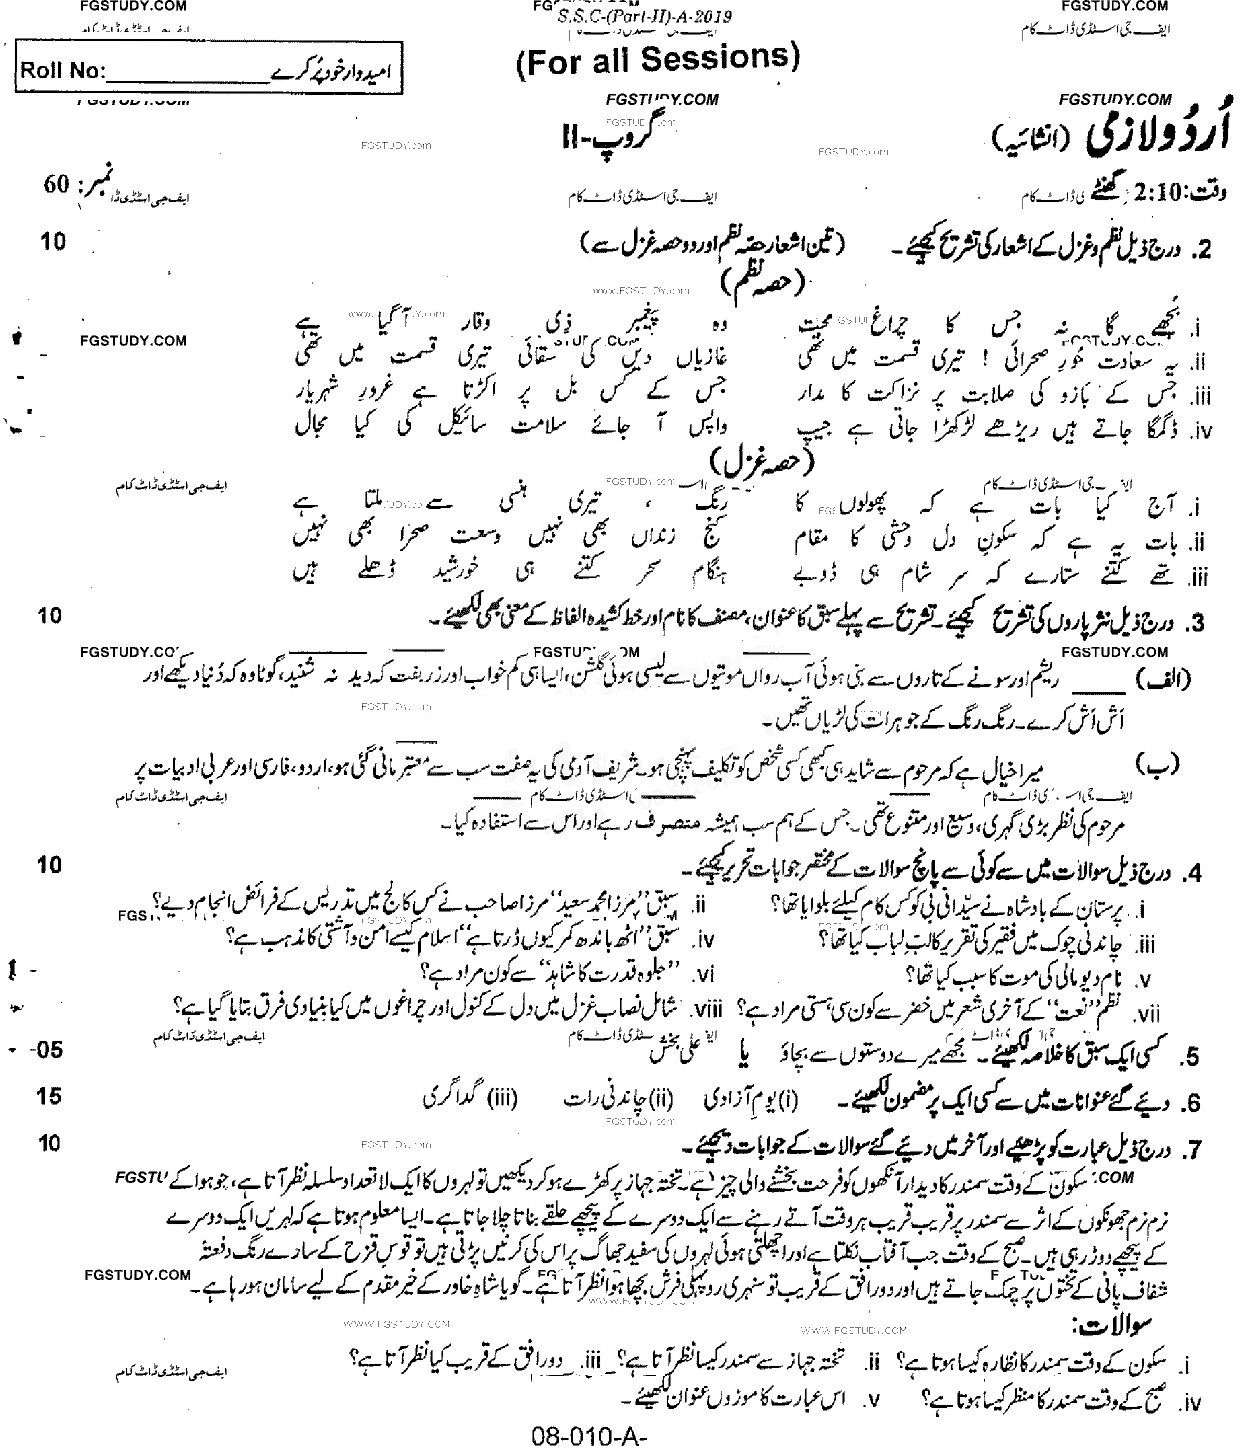 FGSTUDY.COM FGSTUDY.COM
S.S.C-(Part-II)-A-2019
ایف جی اسٹڈی ڈاٹ کام
(For all Sessions)
Roll No:____________ امیدوار خود پُر کرے
FGSTUDY.COM FGSTUDY.COM FGSTUDY.COM
اُردُو لازمی (انشائیہ) گروپ-II
FGSTUDY.com FGSTUDY.com
وقت: 2:10 گھنٹے نمبر: 60
ایف جی اسٹڈی ڈاٹ کام
2. درج ذیل نظم و غزل کے اشعار کی تشریح کیجئے۔ (تین اشعار حصّہ نظم اور دو حصہ غزل سے) 10
(حصہ نظم)
www.FGSTUDY.com
i. بُجھے گا نہ جس کا چراغِ محبت وہ پیغمبرِ ذی وقار آ گیا ہے
FGSTUDY.COM
ii. یہ سعادت حُورِ صحرائی ! تیری قسمت میں تھی غازیانِ دیں کی سقائی تیری قسمت میں تھی
iii. جس کے بازو کی صلابت پر نزاکت کا مدار جس کے کس بل پر اکڑتا ہے غرورِ شہریار
iv. ڈگمگا جاتے ہیں ریڑھے لڑکھڑا جاتی ہے جیپ واپس آ جائے سلامت سائیکل کی کیا مجال
(حصہ غزل)
ایف جی اسٹڈی ڈاٹ کام FGSTUDY.com
i. آج کیا بات ہے کہ پھولوں کا رنگ ، تیری ہنسی سے ملتا ہے
ii. بات یہ ہے کہ سکونِ دل وحشی کا مقام کنج زنداں بھی نہیں وسعت صحرا بھی نہیں
iii. تھے کتنے ستارے کہ سر شام ہی ڈوبے ہنگام سحر کتنے ہی خورشید ڈھلے ہیں
3. درج ذیل نثر پاروں کی تشریح کیجئے۔ تشریح سے پہلے سبق کا عنوان، مصنف کا نام اور خط کشیدہ الفاظ کے معنی بھی لکھیئے۔ 10
FGSTUDY.COM
(الف) ریشم اور سونے کے تاروں سے بنی ہوئی آب رواں موتیوں سے لیسی ہوئی گلشن، ایسا ہی کم خواب اور زربفت کہ دید نہ شنید، گوٹا وہ کہ دُنیا دیکھے اور
FGSTUDY.com
اَش اَش کرے۔ رنگ رنگ کے جواہرات کی لڑیاں تھیں۔
(ب) میرا خیال ہے کہ مرحوم سے شاید ہی کبھی کسی شخص کو تکلیف پہنچی ہو۔ شریف آدمی کی یہ صفت سب سے معتبر مانی گئی ہو، اردو، فارسی اور عربی ادبیات پر
ایف جی اسٹڈی ڈاٹ کام
مرحوم کی نظر بڑی گہری، وسیع اور متنوع تھی۔ جس کے ہم سب ہمیشہ متصرف رہے اور اس سے استفادہ کیا۔
4. درج ذیل سوالات میں سے کوئی سے پانچ سوالات کے مختصر جوابات تحریر کیجئے۔ 10
i. پرستان کے بادشاہ نے سیّدانی بی کو کس کام کیلئے بلوایا تھا؟ ii. سبق "مرزا محمد سعید" مرزا صاحب نے کس کالج میں تدریس کے فرائض انجام دیے؟
iii. چاندنی چوک میں فقیر کی تقریر کا لبِ لباب کیا تھا؟ iv. سبق "ہاتھ باندھ کمر کیوں ڈرتا ہے" اسلام کیسے امن و آشتی کا مذہب ہے؟
v. نام دیو مالی کی موت کا سبب کیا تھا؟ vi. "جلوہ قدرت کا شاہد" سے کون مراد ہے؟
vii. نظم "نعت" کے آخری شعر میں خضر سے کون سی ہستی مراد ہے؟ viii. شامل نصاب غزل میں دل کے کنول اور چراغوں میں کیا بنیادی فرق بتایا گیا ہے؟
5. کسی ایک سبق کا خلاصہ لکھیئے۔ مجھے میرے دوستوں سے بچاؤ یا علی بخش 05
6. دیئے گئے عنوانات میں سے کسی ایک پر مضمون لکھیئے۔ (i) یوم آزادی (ii) چاندنی رات (iii) گداگری 15
FGSTUDY.com
7. درج ذیل عبارت کو پڑھیئے اور آخر میں دیئے گئے سوالات کے جوابات دیجئے۔ 10
سکون کے وقت سمندر کا دیدار آنکھوں کو فرحت بخشنے والی چیز ہے۔ تختہ جہاز پر کھڑے ہو کر دیکھیں تو لہروں کا ایک لاتعداد سلسلہ نظر آتا ہے، جو ہوا کے
نرم نرم جھونکوں کے اثر سے سمندر پر قریب قریب ہر وقت آتے رہنے سے ایک دوسرے کے پیچھے حلقے بناتا چلا جاتا ہے۔ ایسا معلوم ہوتا ہے کہ لہریں ایک دوسرے
کے پیچھے دوڑ رہی ہیں۔ صبح کے وقت جب آفتاب نکلتا ہے اور اچھلتی ہوئی لہروں کی سفید جھاگ پر اس کی کرنیں پڑتی ہیں تو قوس قزح کے سارے رنگ دفعتہً
شفاف پانی کے تختوں پر چمک جاتے ہیں اور دور افق کے قریب تو سنہری روپہلی فرش بچھا ہوا نظر آتا ہے۔ گویا شاہِ خاور کے خیر مقدم کے لیے سامان ہو رہا ہے۔
FGSTUDY.COM
سوالات:
WWW.FGSTUDY.COM WWW.FGSTUDY.COM
i. سکون کے وقت سمندر کا نظارہ کیسا ہوتا ہے؟ ii. تختہ جہاز سے سمندر کیسا نظر آتا ہے؟ iii. دور افق کے قریب کیا نظر آتا ہے؟
ایف جی اسٹڈی ڈاٹ کام
iv. صبح کے وقت سمندر کا منظر کیسا ہوتا ہے؟ v. اس عبارت کا موزوں عنوان لکھیئے۔
08-010-A-